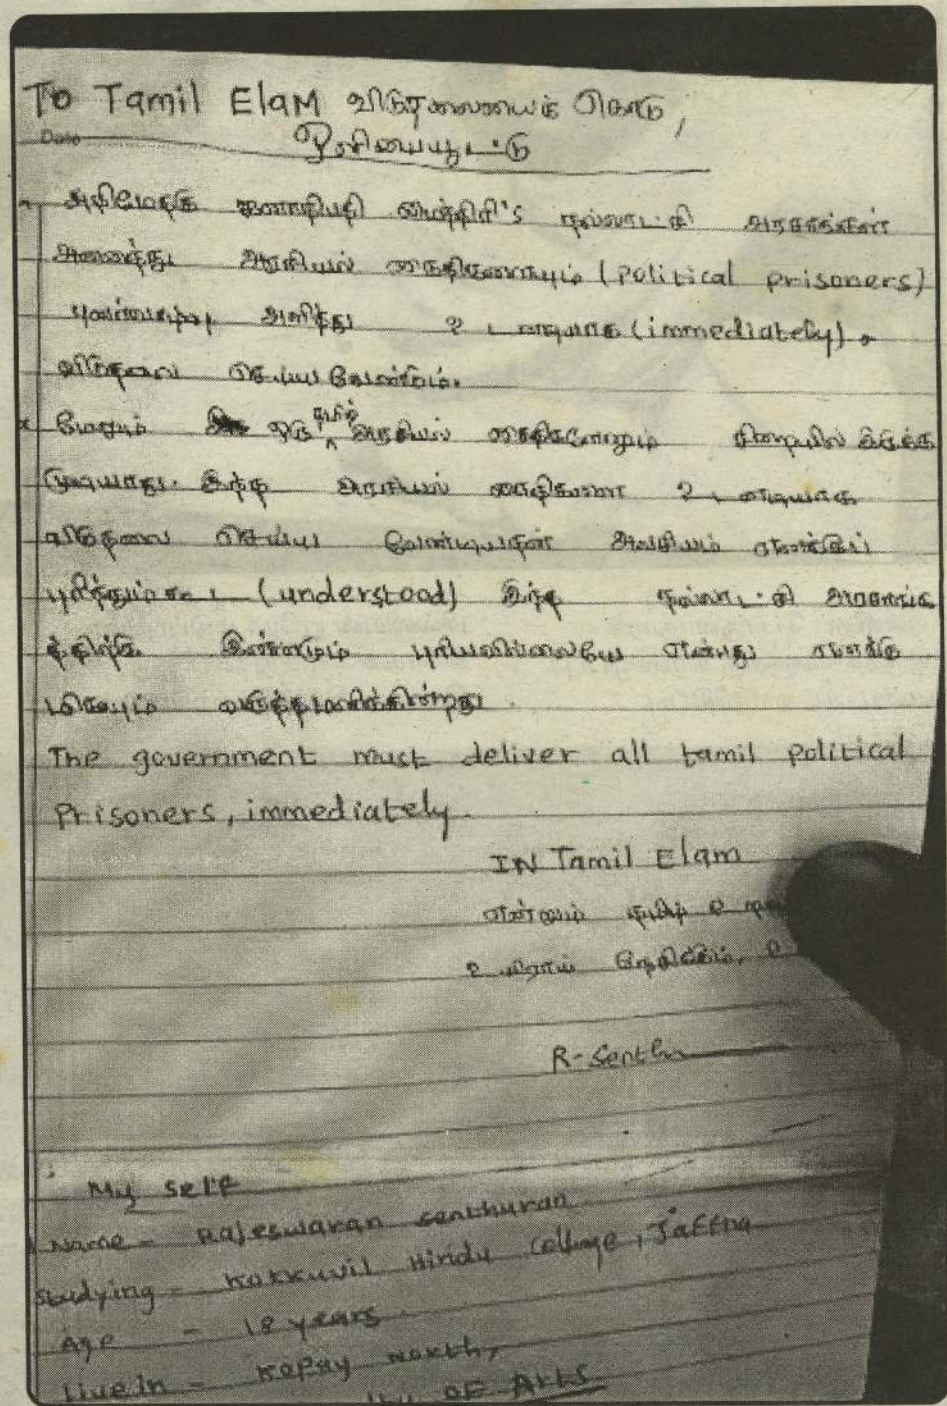 To Tamil ElaM விடுதலையைக் கொடு,
Date
ஒளியையூட்டு
அதிமேதகு ஜனாதிபதி மைத்திரி's நல்லாட்சி அரசாங்கள்
அனைத்து அரசியல் கைதிகளையும் (political prisoners)
அளித்து உடனடியாக (immediately).
விடுதலை செய்ய வேண்டும்.
மேலும் ஒரு தமிழ் அரசியல் கைதிகளேனும் சிறையில் இருக்க
முடியாது. இந்த அரசியல் கைதிகளை உடனடியாக
விடுதலை செய்ய வேண்டியதன் அவசியம் எனக்குப்
புரிந்தும்கூட (understood) இந்த நல்லாட்சி அரசாங்க
த்திற்கு இன்னமும் புரியவில்லையே என்பது எனக்கு
மிகவும் வருத்தமளிக்கின்றது.
The government must deliver all tamil political
Prisoners, immediately.
IN Tamil Elam
என்றும் தமிழ் உ
உயிராய் நேசிக்கும், உ
R-Senthu
My Self
Name - Rajeswaran Senthuran
Studying - Kokkuvil Hindu College, Jaffna
Age - 18 years
Live in - Kopay North,
OF Arts